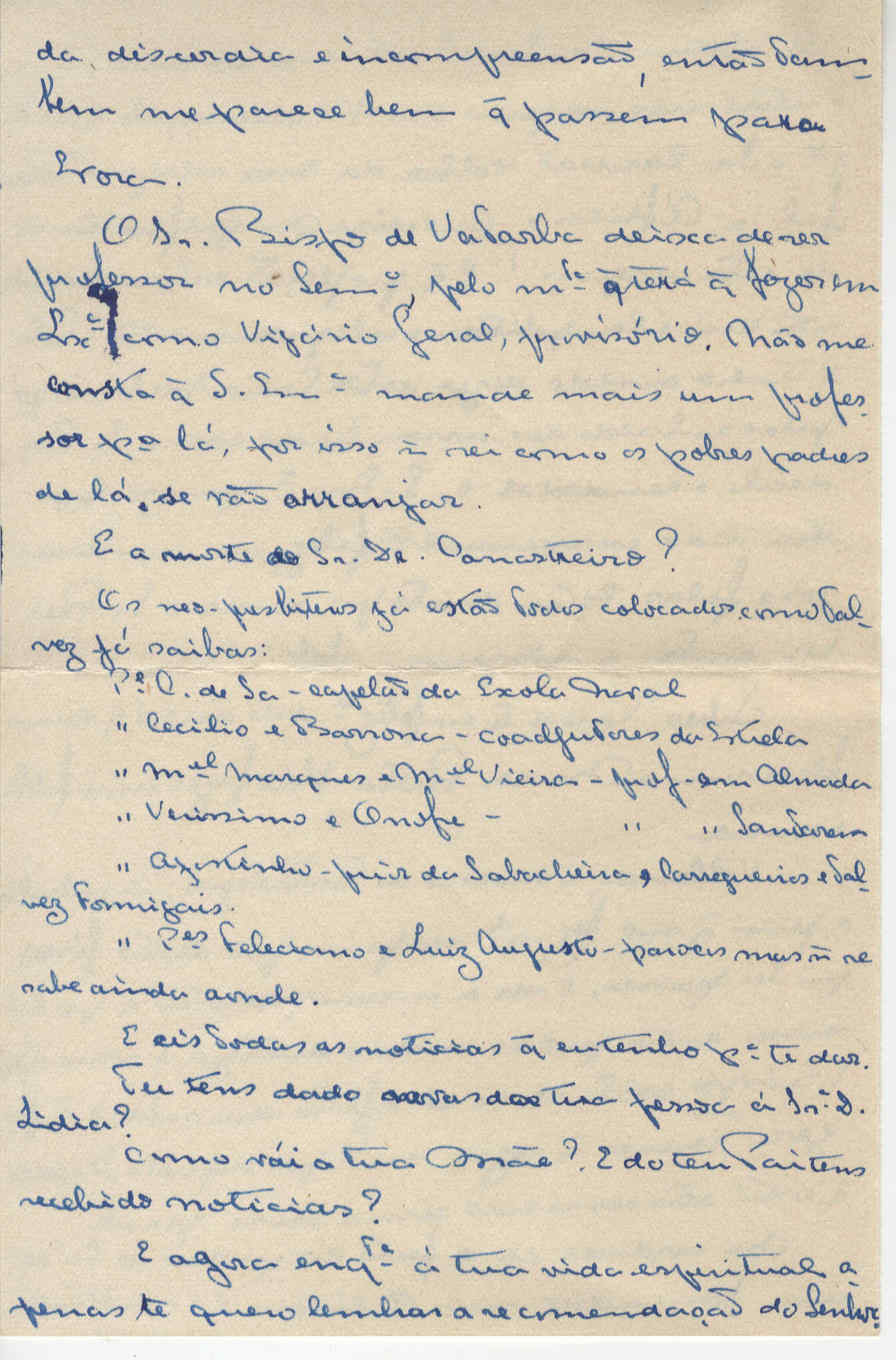 da discordia e incompreensão, então tam-
bem me parece bem q̃ passem para
Evora.
O Sr. Bispo de Vatarba deixa de ser
professor no Semº, pelo mᵗᵒ q̃ terá q̃ fazer em
Lxª como Vigário Geral, provisório. Não me
consta q̃ S. Emª mande mais um profes-
sor pª lá, por isso ñ sei como os pobres padres
de lá, se vão arranjar.
E a morte do Sr. Dr. Canastreiro?
Os neo-presbiteros já estão todos colocados como tal-
vez já saibas:
Pᵉ C. de Sa - capelão da Escola Naval
" Cecilio e Barrona - coadjutores da Estrela
" Mᵉˡ Marques e Mᵉˡ Vieira - prof. em Almada
" Verissimo e Onofre - " " Santarem
" Azinhenho - prior da Sabacheira, Carregueiros e tal-
vez Formigais.
" Pᵉˢ Feleciano e Luiz Augusto - parocos mas ñ se
sabe ainda aonde.
E eis todas as noticias q̃ eu tenho pª te dar.
Tu tens dado novas da tua pessoa á Srª D.
Lidia?
Como vái a tua Mãe? E do teu Pai tens
recebido noticias?
E agora enqᵗᵒ á tua vida espiritual a-
penas te quero lembrar a recomendação do Senhor: